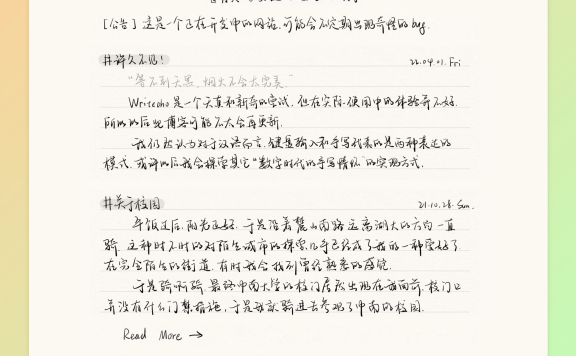 [公告] 这是一个正在开发中的网站，可能会不定期出现奇怪的bug.
#许久不见! 22.04.01. Fri
"等不到天黑，烟火不会太完美"
Writeoho 是一个天真和新奇的尝试，但在实际使用中的体验并不好.
所以以后此博客可能不大会再更新.
我仍然认为对于汉语而言，键盘输入和手写代表的是两种表达的
模式，或许以后我会探索其它"数字时代的手写情怀"的实现方式.
#关于校园 21.10.28. Sun.
午饭过后，阳光正好，于是沿着麓山南路远离湖大的方向一直
骑，这种时不时的对陌生城市的探索几乎已经成了我的一种爱好了
在完全陌生的街道，有时我会找到曾经熟悉的感觉.
于是骑呀骑，最终中南大学的校门居然出现在该面前，校门口
并没有什么门禁措施，于是我就骑进去参观了中南的校园.
Read More →